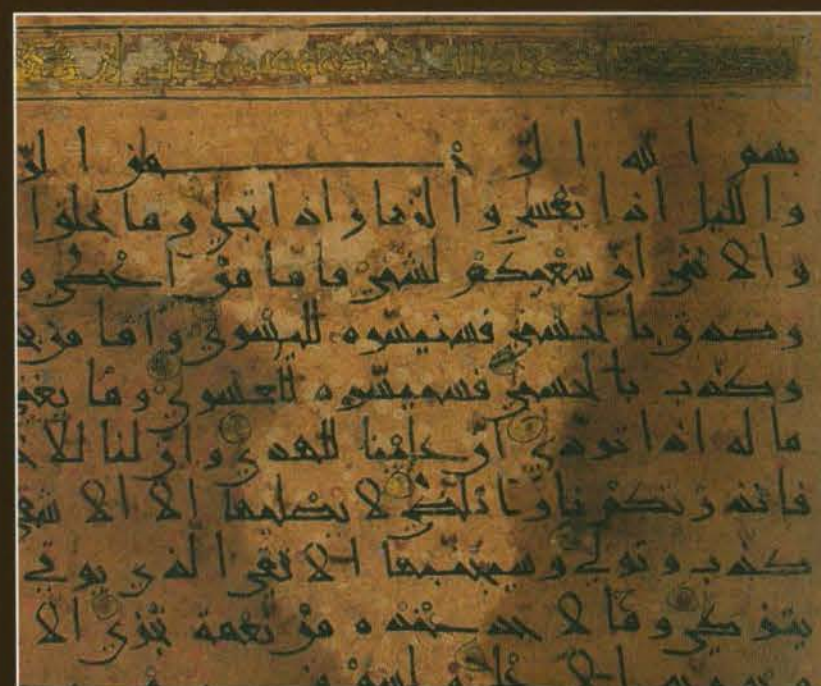 بسم الله الرحمن الر
والليل اذا يغشى والنهار اذا تجلى وما خلق ا
والانثى ان سعيكم لشتى فاما من اعطى و
وصدق بالحسنى فسنيسره لليسرى واما من بخ
وكذب بالحسنى فسنيسره للعسرى وما يغنى
ماله اذا تردى ان علينا للهدى وان لنا للا
فانذرتكم نارا تلظى لا يصليها الا الاشقى
كذب وتولى وسيجنبها الاتقى الذى يوتى
يتزكى وما لاحد عنده من نعمة تجزى الا